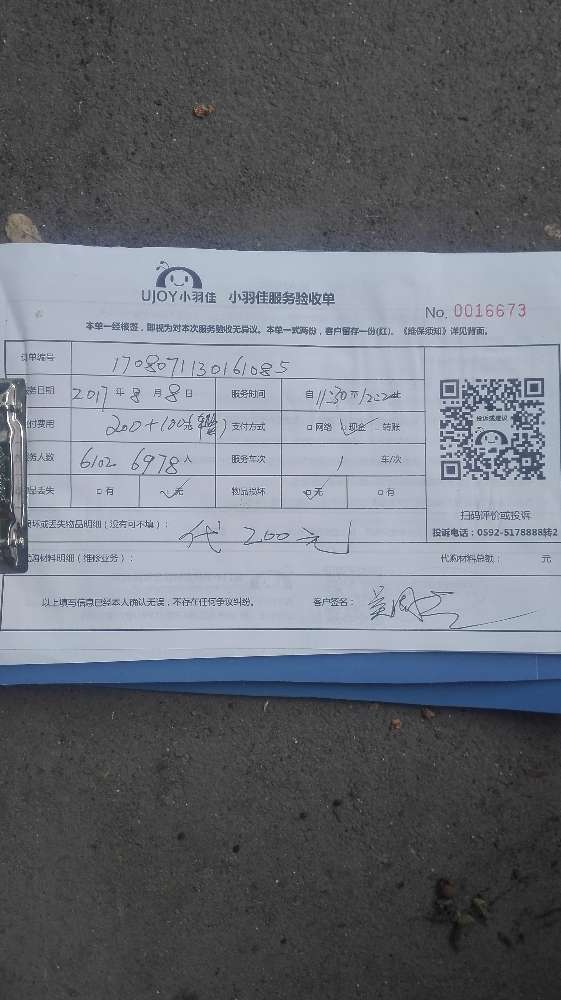 UJOY小羽佳 小羽佳服务验收单
No. 0016673
本单一经接签，即视为对本次服务验收无异议。本单一式两份，客户留存一份(红)。《维保须知》详见背面。
单编号 1708071130161085
务日期 2017年8月8日 服务时间 自11:30至12:24
付费用 200+100 支付方式 □网络 □现金 □转账
务人数 6102 6978人 服务车次 1 车/次
品丢失 □有 □无 物品损坏 □无 □有
坏或丢失物品明细（没有可不填）： 代200元
购材料明细（维修业务）： 代购材料总额： 元
以上填写信息已经本人确认无误，不存在任何争议纠纷。 客户签名： 吴
投诉或建议
扫码评价或投诉
投诉电话：0592-5178888转2